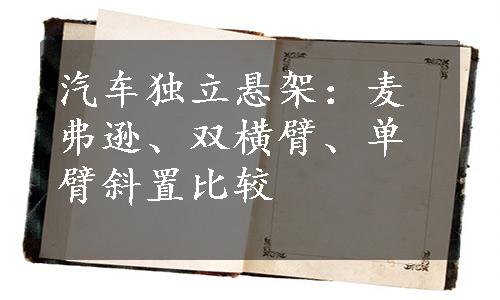 汽车独立悬架：麦
弗逊、双横臂、单
臂斜置比较